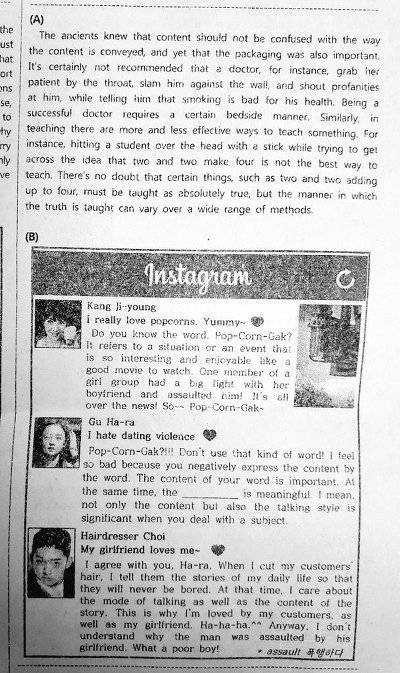 (A)
The ancients knew that content should not be confused with the way
the content is conveyed, and yet that the packaging was also important.
It's certainly not recommended that a doctor, for instance, grab her
patient by the throat, slam him against the wall, and shout profanities
at him, while telling him that smoking is bad for his health. Being a
successful doctor requires a certain bedside manner. Similarly, in
teaching there are more and less effective ways to teach something. For
instance, hitting a student over the head with a stick while trying to get
across the idea that two and two make four is not the best way to
teach. There's no doubt that certain things, such as two and two adding
up to four, must be taught as absolutely true, but the manner in which
the truth is taught can vary over a wide range of methods.
(B)
Instagram
Kang Ji-young
I really love popcorns. Yummy~
Do you know the word, Pop-Corn-Gak?
It refers to a situation or an event that
is so interesting and enjoyable like a
good movie to watch. One member of a
girl group had a big fight with her
boyfriend and assaulted him! It's all
over the news! So~~ Pop-Corn-Gak~
Gu Ha-ra
I hate dating violence
Pop-Corn-Gak?!!! Don't use that kind of word! I feel
so bad because you negatively express the content by
the word. The content of your word is important. At
the same time, the __________ is meaningful. I mean,
not only the content but also the talking style is
significant when you deal with a subject.
Hairdresser Choi
My girlfriend loves me~
I agree with you, Ha-ra. When I cut my customers'
hair, I tell them the stories of my daily life so that
they will never be bored. At that time, I care about
the mode of talking as well as the content of the
story. This is why I'm loved by my customers, as
well as my girlfriend. Ha-ha-ha.^^ Anyway, I don't
understand why the man was assaulted by his
girlfriend. What a poor boy!
* assault 폭행하다